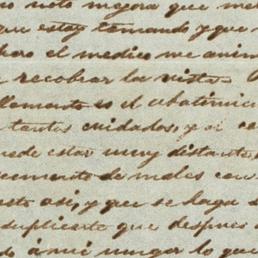 no noto mejora que me
que estoy tomando y que
pero el medico me anim
recobrar la vista
es el abatimie
tantos cuidados, y si
uede estar muy distante,
umento de males con
esto asi, y que se haga
suplicarte que despues
á mi ningun lo que